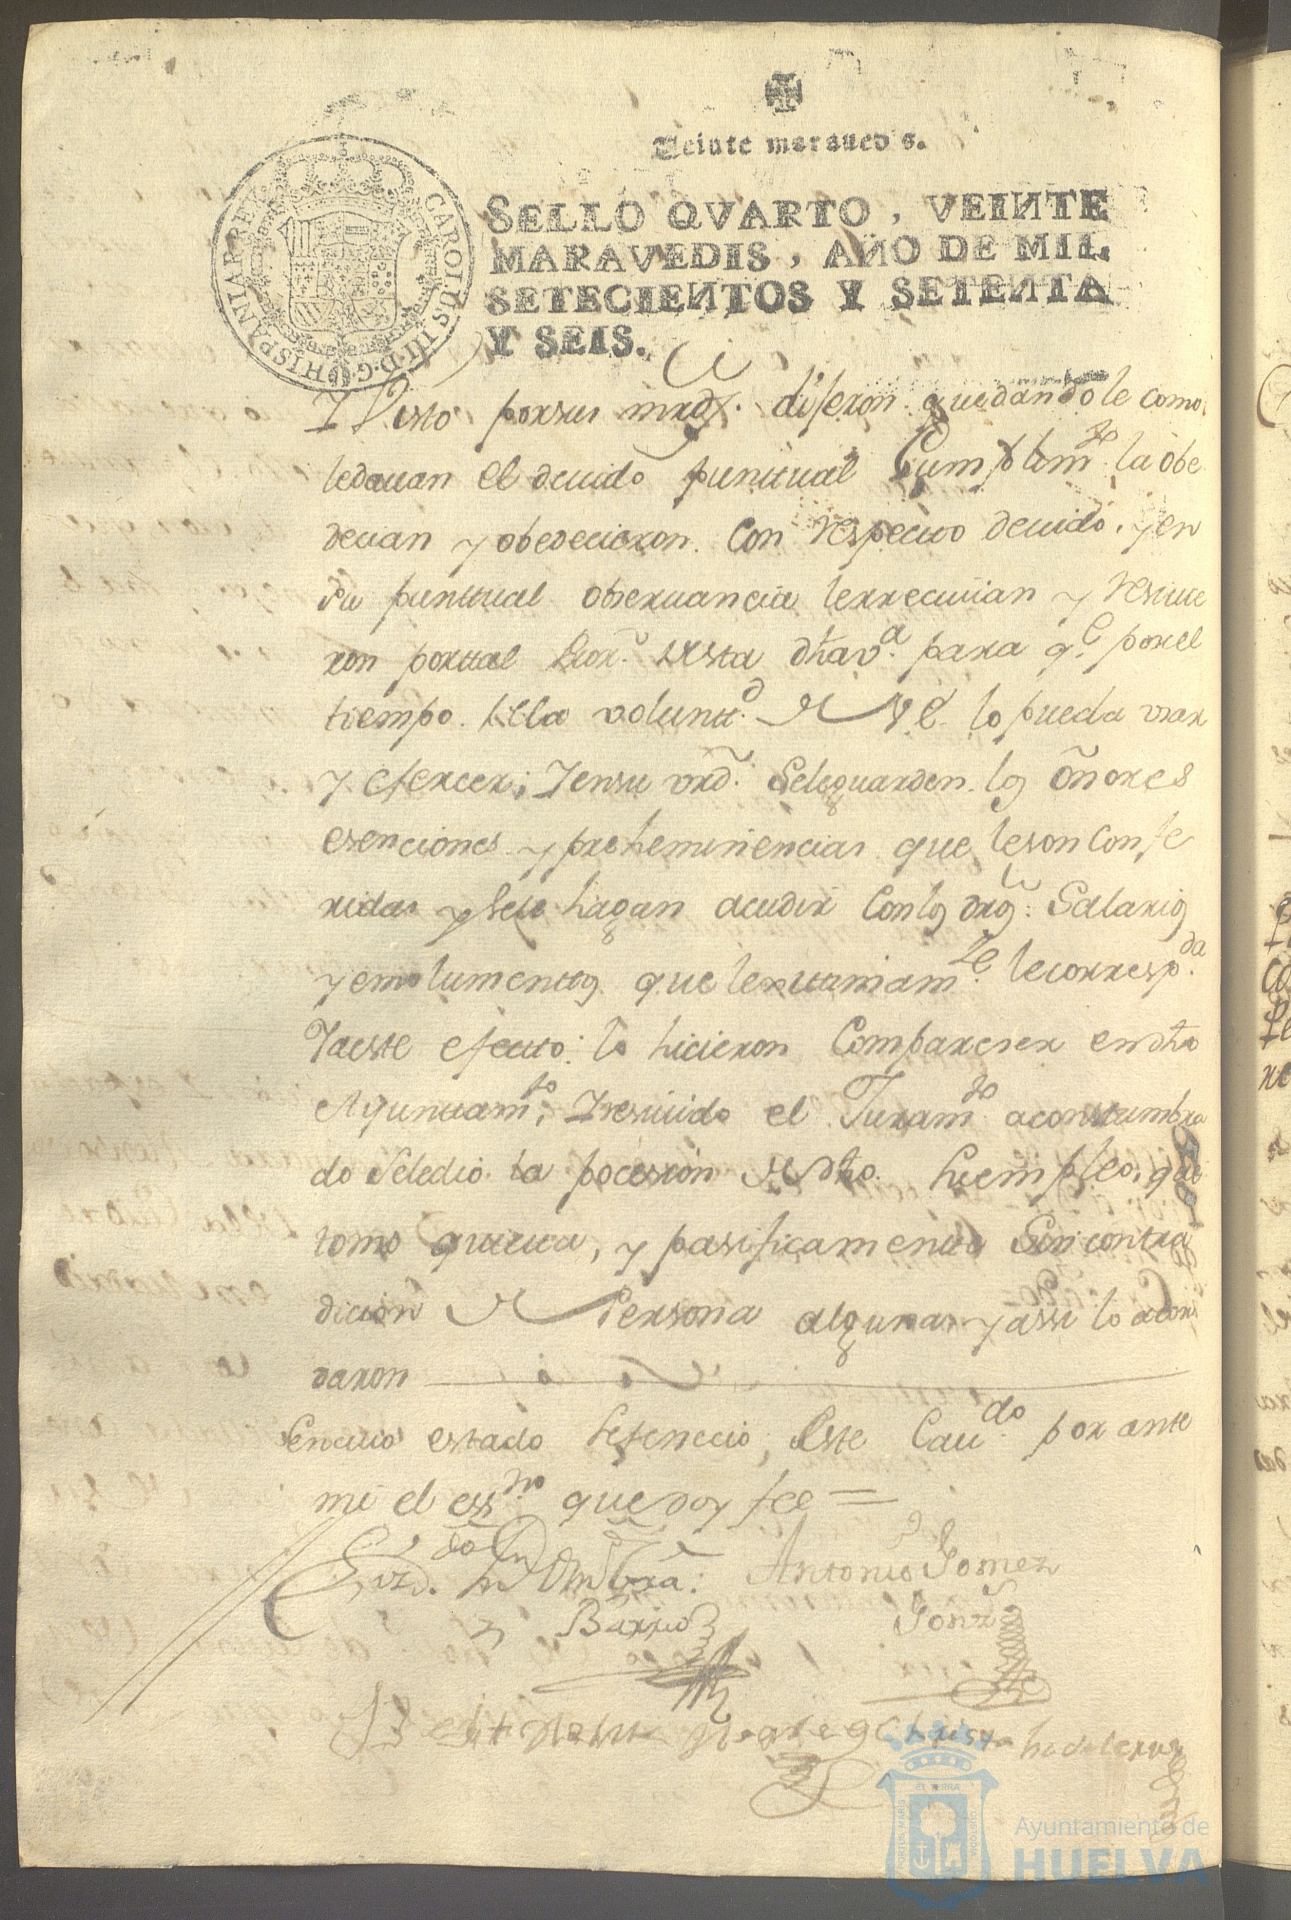 Veinte maravedis.
SELLO QVARTO, VEINTE
MARAVEDIS, AÑO DE MIL
SETECIENTOS Y SETENTA
Y SEIS.
CAROLUS III D G HISPANIAR REX
Y Visto por sus mrds. dijeron quedandole como
ledauan el deuido punttual Cumplimto. la obe
decian y obedecieron con respecto deuido, y en
su punttual obseruancia le rreciuian y resiuie
ron por ttal de esta dha va. para qe. por el
tiempo de la voluntd. de V E lo pueda vsar
y efercer; Y en su vrd. se le guarden los oñores
esenciones y preheminencias que le son Confe
ridas y se le hagan acudir Con los dros. Salarios
y emolumenttos que lexittimamte. le correspda.
Y a este efectto: lo hicieron Comparecer en dho
Ayunttamto; Y resiuido el Juramto. acosttumbra
do se le dio la pocesion de dho. Hempleo, que
tomo quieta, y pasificamente Sin contra
dicion de Persona alguna y assi lo acor
daron
En cuio estado se fenecio, Este Caudo. por ante
mi el essno que doy fee =
Barrio
Antonio Gomez
Gonzs
Ayuntamiento de
HUELVA